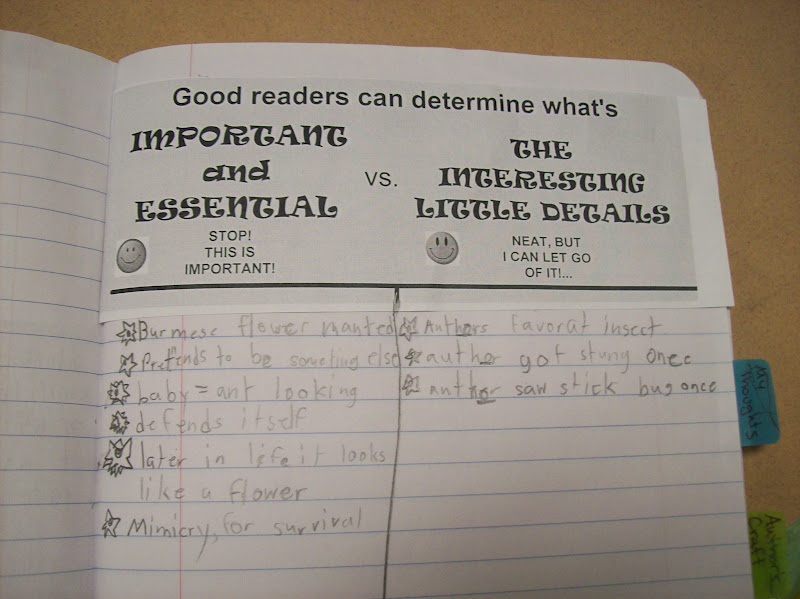 Good readers can determine what's
IMPORTANT
and
ESSENTIAL
VS.
THE
INTERESTING
LITTLE DETAILS
STOP!
THIS IS
IMPORTANT!
NEAT, BUT
I CAN LET GO
OF IT!...
Burmese flower manted
Pretends to be someting else
baby = ant looking
defends itself
later in life it looks
like a flower
Mimicry, for survival
Authors favorat insect
author got stung once
author saw stick bug once
My
Thoughts
Author's
Craft